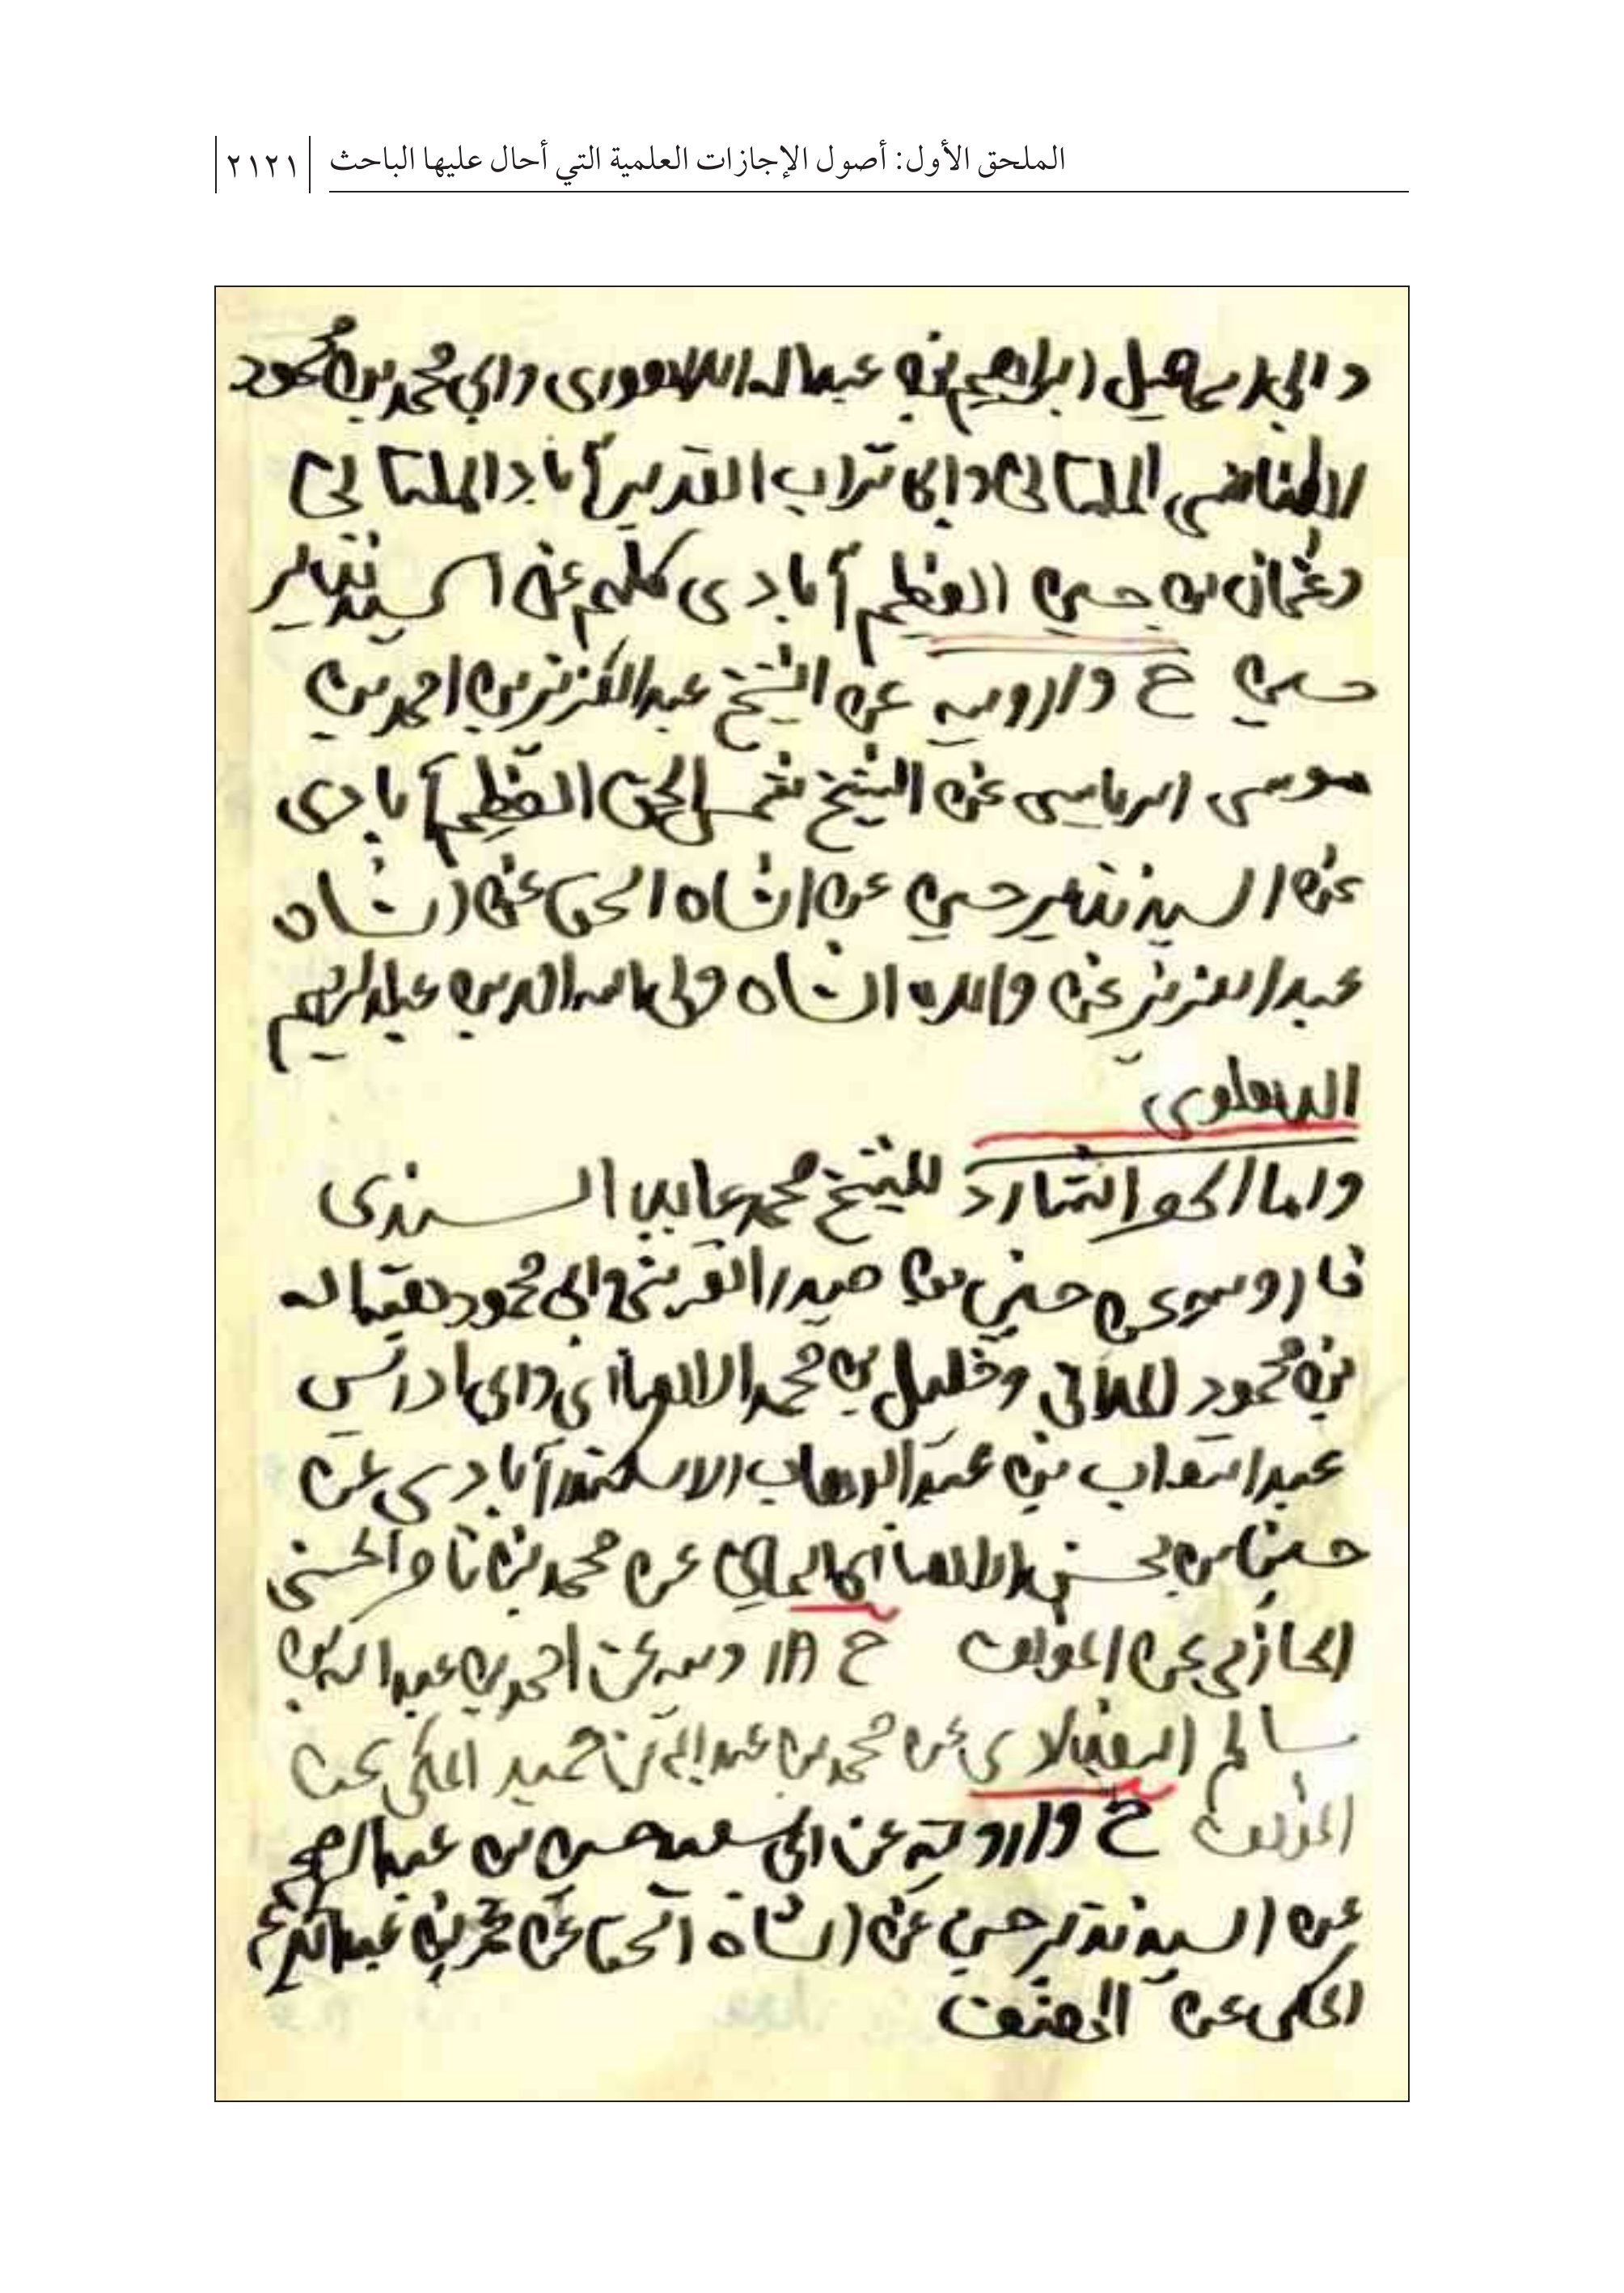 الملحق الأول: أصول الإجازات العلمية التي أحال عليها الباحث ٢١٢١
ابراهيم بن عبد الله اللاهوري وابي محمد بن محمود
الملتاني وابي تراب القدير آباد الملتاني
وعثمان بن حسين العظيم آبادي كلهم عن السيد نذير
حسين ح وارويه عن الشيخ عبد العزيز بن احمد بن
موسى الرياسي عن الشيخ شمس الحق العظيم آبادي
عن السيد نذير حسين عن الشاه اسحاق عن الشاه
عبد العزيز عن والده الشاه ولي الله الدين عبد الرحيم
الدهلوي
واما الشارد للشيخ محمد عابد السندي
فارويه عن حسين بن حيدر القرشي وابي محمود
بن محمود وخليل بن محمد الانصاري وابي ادريس
عبد التواب بن عبد الوهاب الاسكندرآبادي عن
حسين بن محسن الانصاري اليماني عن محمد بن ناصر الحسني
الحازمي عن المؤلف ح وارويه عن احمد بن عبد الله بن
سالم البغدادي عن محمد بن عبد الله بن حميد المكي عن
المؤلف ح وارويه عن ابي سعيد حسين بن عبد الرحيم
عن السيد نذير حسين عن الشاه اسحاق عن عمر بن عبد الكريم
المكي عن المصنف